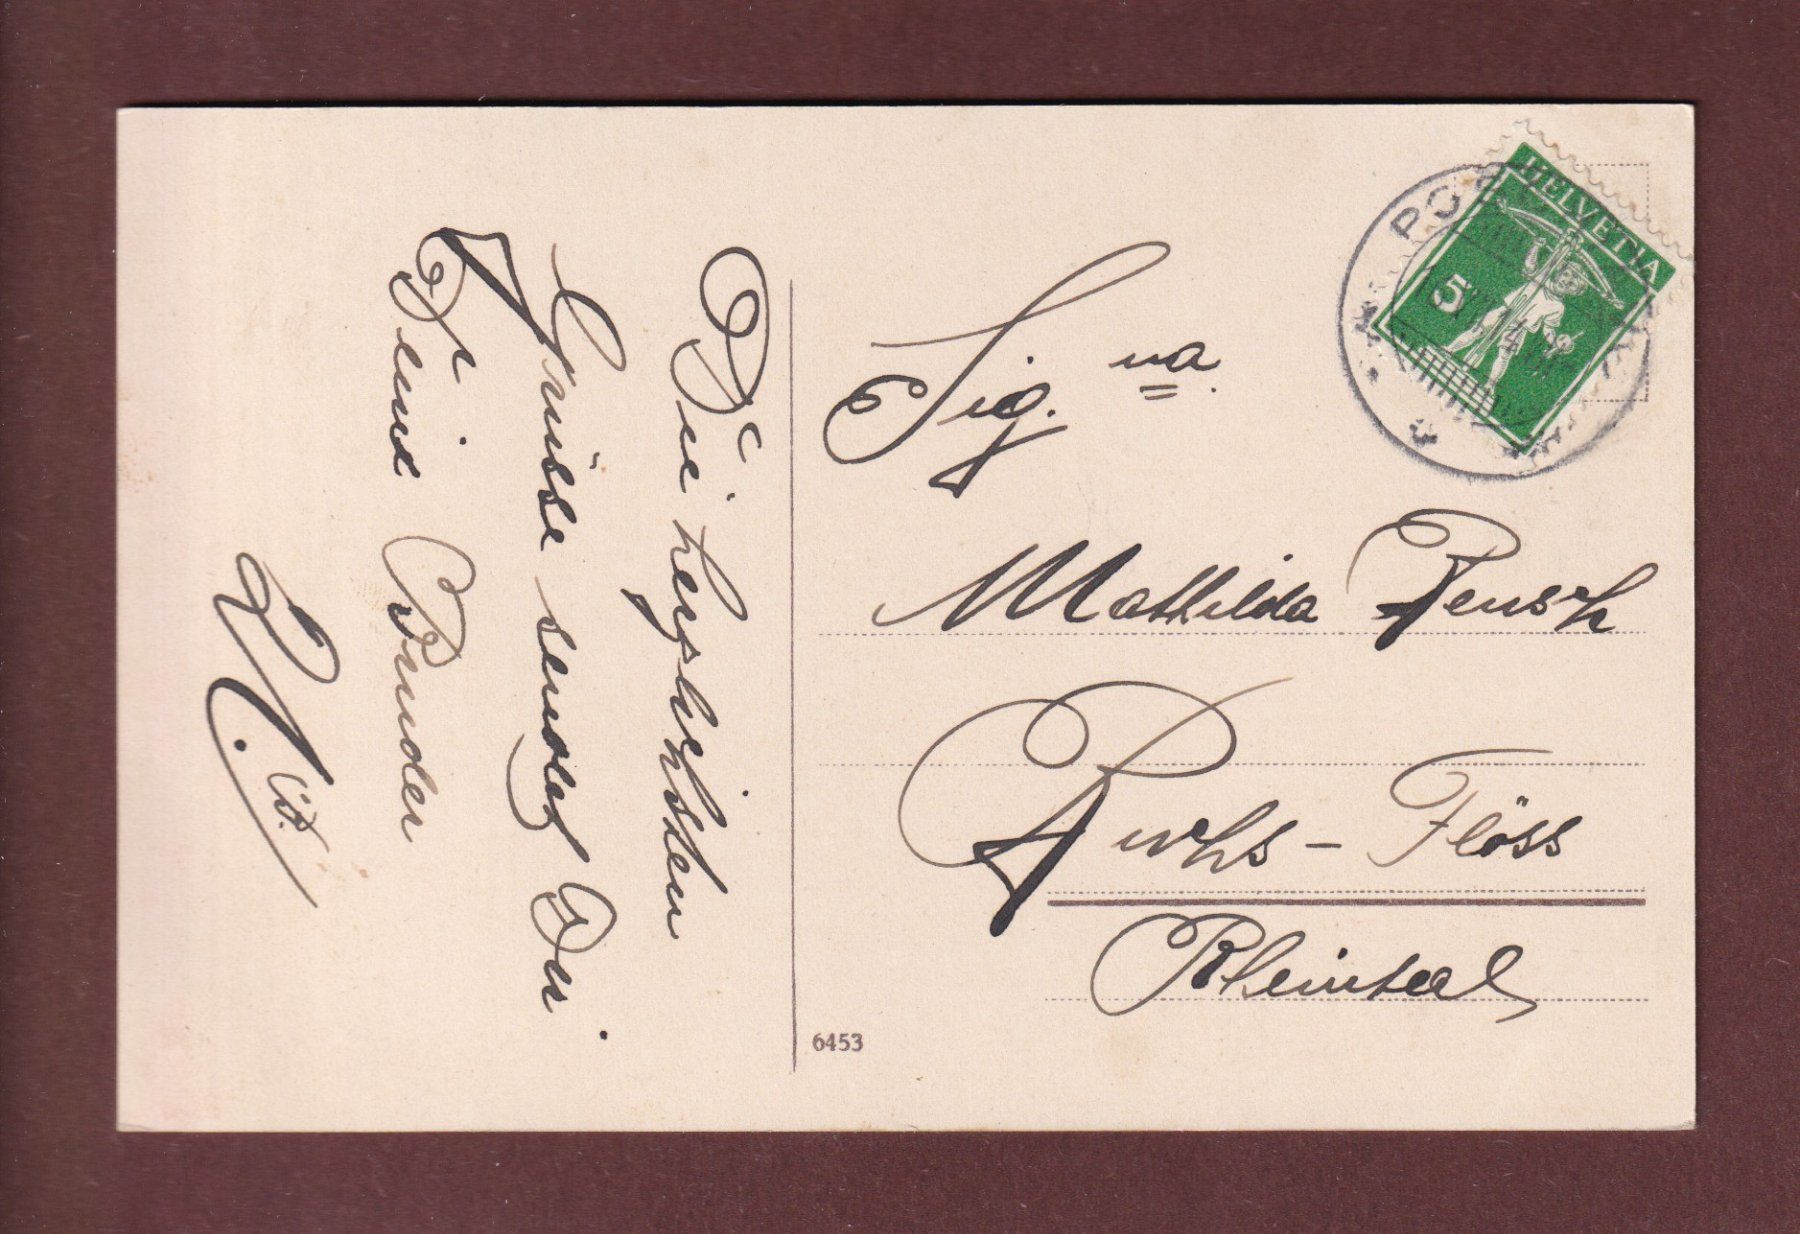 Die herzlichsten
Grüsse sendet Dir
Dein Bruder
Sig.na
Mathilda Beusch
Buchs - Flöss
Rheinteal
6453
HELVETIA
5